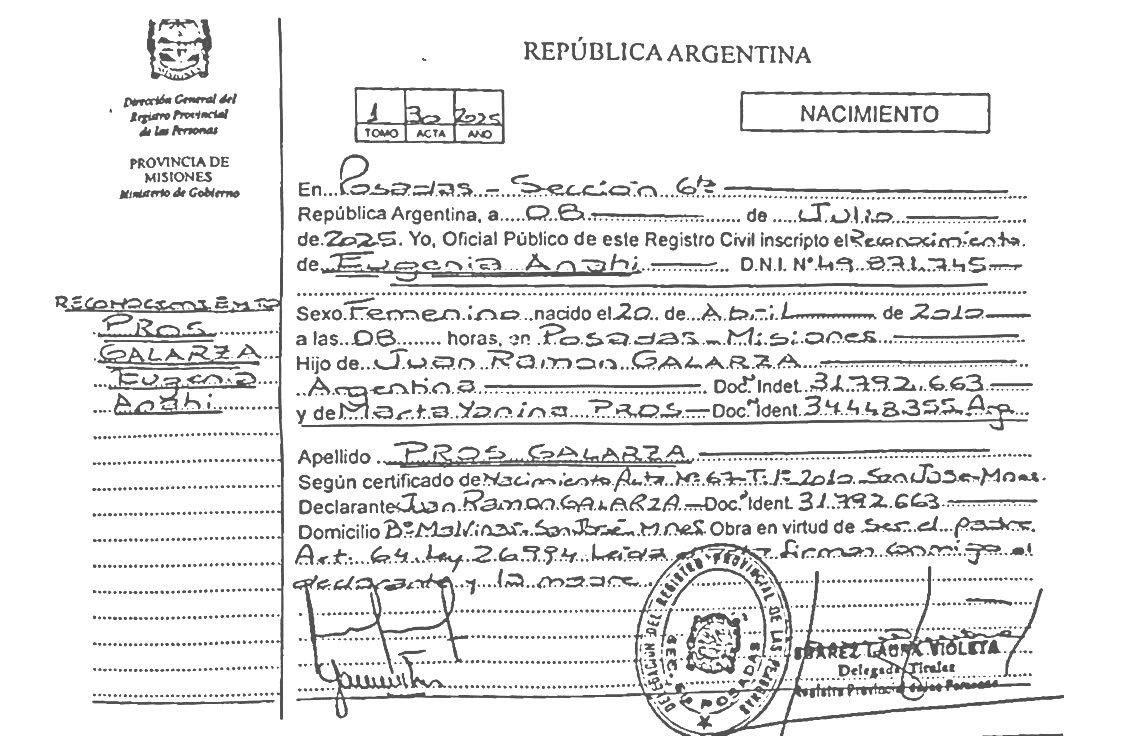 Dirección General del
Registro Provincial
de las Personas
PROVINCIA DE
MISIONES
Ministerio de Gobierno
RECONOCIMIENTO
PROS
GALARZA
Eugenia
Anahi
REPÚBLICA ARGENTINA
1 30 2025
TOMO ACTA AÑO
NACIMIENTO
En Posadas - Sección 6ta
República Argentina, a 08 de Julio
de 2025. Yo, Oficial Público de este Registro Civil inscripto el Reconocimiento
de Eugenia Anahi D.N.I. N° 49.871.745
Sexo Femenino nacido el 20 de Abril de 2010
a las 08 horas, en Posadas - Misiones
Hijo de Juan Ramon GALARZA
Argentina Doc. Indet. 31.792.663
y de Marta Yanina PROS - Doc. Ident. 34.448.355 Arg
Apellido PROS GALARZA
Según certificado de Nacimiento Acta N° 67-T.1°-2010-San Jose-Mnes.
Declarante Juan Ramon GALARZA - Doc. Ident. 31.792.663
Domicilio B° Malvinas-San José-Mnes Obra en virtud de ser el padre
Art. 64 Ley 26994 Leida el acta firman conmigo el
declarante y la madre
DELEGACIÓN DEL REGISTRO PROVINCIAL DE LAS PERSONAS
SEC. 6 POSADAS
SUAREZ LAURA VIOLETA
Delegada Titular
Registro Provincial de las Personas